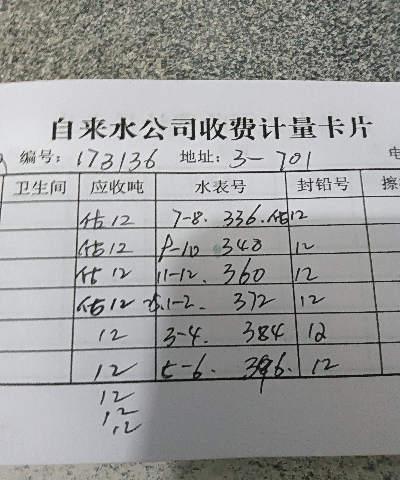 自来水公司收费计量卡片
编号: 173136 地址: 3-701
卫生间 应收吨 水表号 封铅号
估12 7-8. 336. 估12
估12 9-10 348 12
估12 11-12. 360 12
估12 1-2. 372 12
12 3-4. 384 12
12 5-6. 396. 12
12
12
12